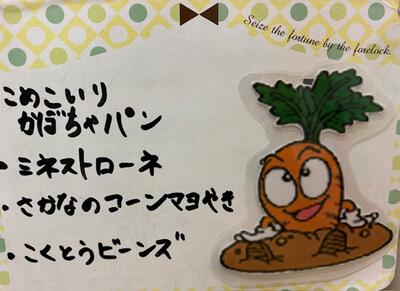 Seize the fortune by the forelock.
こめこいり
かぼちゃパン
・ミネストローネ
・さかなのコーンマヨやき
・こくとうビーンズ